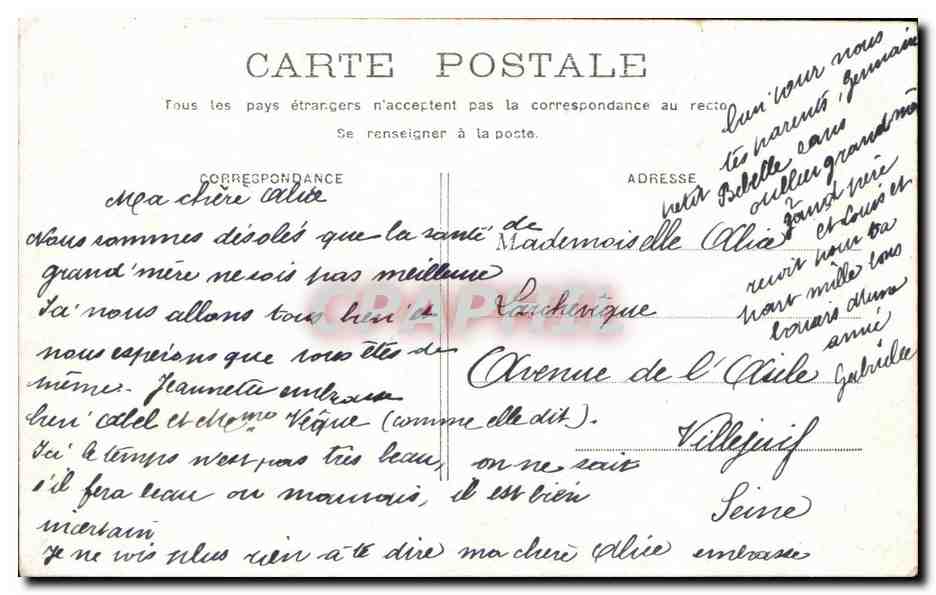 CARTE POSTALE
Tous les pays étrangers n'acceptent pas la correspondance au recto
Se renseigner à la poste.
CORRESPONDANCE
Ma chère Alice
Nous sommes désolés que la santé de
grand'mère ne sois pas meilleure
Ici nous allons tous bien et
nous espérons que vous êtes de
même. Jeannette embrasse
bien Abel et Mme Vèque (comme elle dit).
Ici le temps n'est pas très beau, on ne sait
s'il fera beau ou mauvais, il est bien
incertain
Je ne vois plus rien à te dire ma chère Alice embrasse
ADRESSE
Mademoiselle Alice
Avenue de l'Asile
Villejuif
Seine
bien pour nous
tes parents, Germain
petit Bebelle sans
oublier grand mère
grand père
et Louis et
reçoit pour ta
part mille bons
baisers d'une
amie
Gabrielle
CPAPHIL